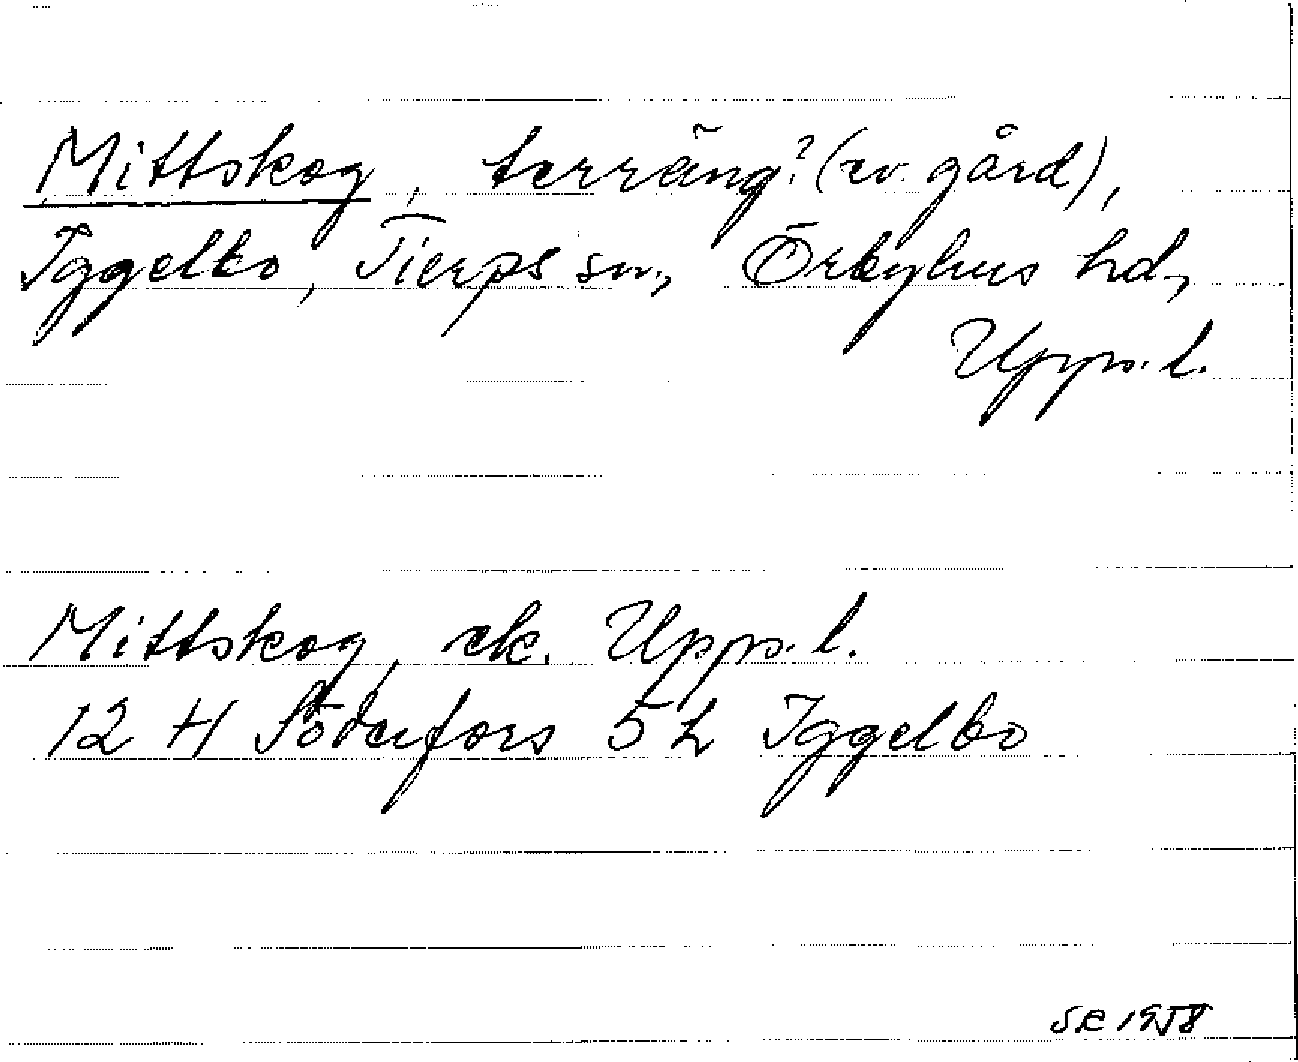 Mittskog, terräng? (ev. gård),
Iggelbo, Tierps sn., Örbyhus hd,
Upps. l.
Mittskog, ek. Upps. l.
12 H Söderfors 5 h Iggelbo
SE 1958